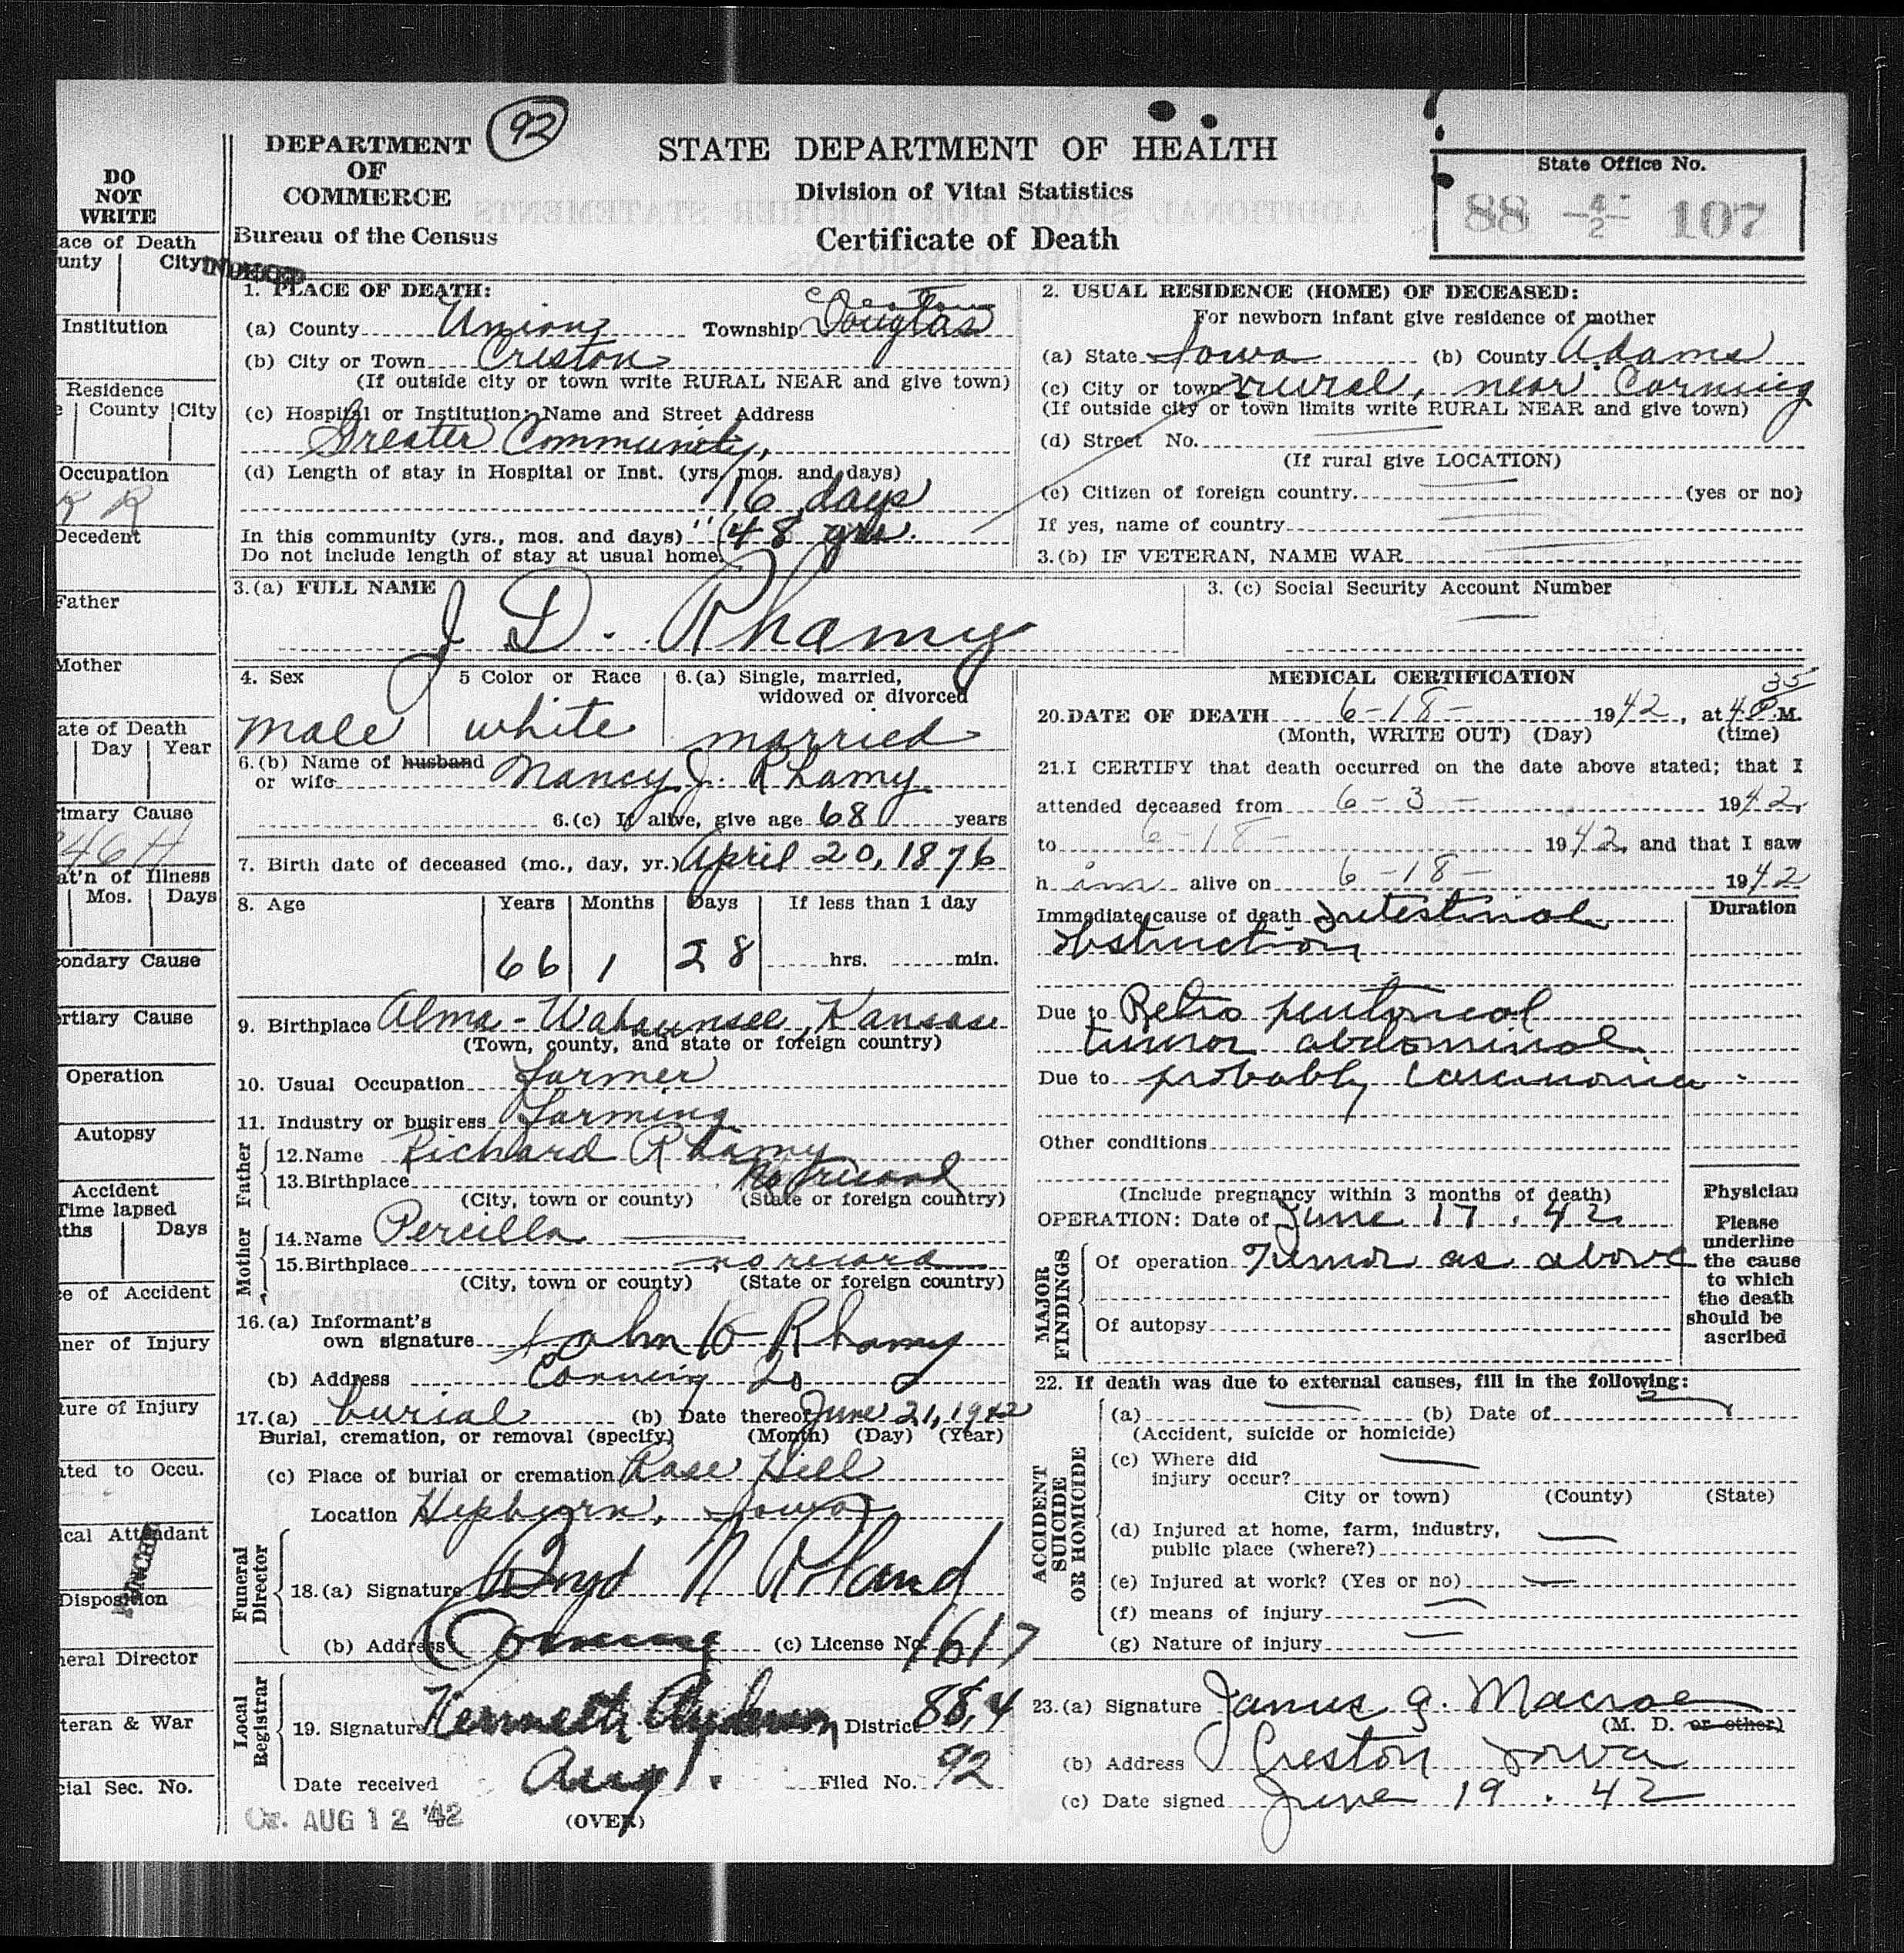 DO
NOT
WRITE
DEPARTMENT
OF
COMMERCE
Bureau of the Census
92
STATE DEPARTMENT OF HEALTH
Division of Vital Statistics
Certificate of Death
State Office No.
88 -4/2- 107
INDEXED
1. PLACE OF DEATH:
(a) County Union Township Douglas
(b) City or Town Creston
(If outside city or town write RURAL NEAR and give town)
(c) Hospital or Institution: Name and Street Address
Greater Community,
(d) Length of stay in Hospital or Inst. (yrs. mos. and days)
16 days
In this community (yrs., mos. and days) " 48 yrs.
Do not include length of stay at usual home.
2. USUAL RESIDENCE (HOME) OF DECEASED:
For newborn infant give residence of mother
(a) State Iowa (b) County Adams
(c) City or town rural, near Corning
(If outside city or town limits write RURAL NEAR and give town)
(d) Street No.
(If rural give LOCATION)
(e) Citizen of foreign country (yes or no)
If yes, name of country
3.(b) IF VETERAN, NAME WAR
3.(a) FULL NAME
J D. Rhamy
3. (c) Social Security Account Number
4. Sex
male
5 Color or Race
white
6.(a) Single, married,
widowed or divorced
married
6.(b) Name of husband
or wife Nancy J. Rhamy
6.(c) If alive, give age 68 years
7. Birth date of deceased (mo., day, yr.) April 20, 1876
8. Age Years Months Days If less than 1 day
66 1 28 hrs. min.
9. Birthplace Alma - Wabaunsee, Kansas
(Town, county, and state or foreign country)
10. Usual Occupation farmer
11. Industry or business farming
Father
12.Name Richard Rhamy
13.Birthplace No record
(City, town or county) (State or foreign country)
Mother
14.Name Percilla
15.Birthplace no record
(City, town or county) (State or foreign country)
16.(a) Informant's
own signature John Rhamy
(b) Address Corning Io
17.(a) burial (b) Date thereof June 21, 1942
Burial, cremation, or removal (specify) (Month) (Day) (Year)
(c) Place of burial or cremation Rose Hill
Location Hepburn, Iowa
Funeral
Director
18.(a) Signature Boyd N Roland
(b) Address Corning (c) License No. 1617
Local
Registrar
19. Signature Kenneth District 88,4
Date received Aug 1. Filed No. 92
AUG 12 '42
(OVER)
MEDICAL CERTIFICATION
20.DATE OF DEATH 6-18- 1942, at 4 35 P.M.
(Month, WRITE OUT) (Day) (time)
21.I CERTIFY that death occurred on the date above stated; that I
attended deceased from 6-3- 1942,
to 6-18- 1942, and that I saw
him alive on 6-18- 1942
Immediate cause of death Intestinal
obstruction
Duration
Due to Retro peritoneal
tumor abdominal
Due to probably carcinoma
Other conditions
(Include pregnancy within 3 months of death)
OPERATION: Date of June 17, 42
MAJOR
FINDINGS
Of operation Tumor as above
Of autopsy
Physician
Please
underline
the cause
to which
the death
should be
ascribed
22. If death was due to external causes, fill in the following:
ACCIDENT
SUICIDE
OR HOMICIDE
(a) (b) Date of
(Accident, suicide or homicide)
(c) Where did
injury occur?
City or town) (County) (State)
(d) Injured at home, farm, industry,
public place (where?)
(e) Injured at work? (Yes or no)
(f) means of injury
(g) Nature of injury
23.(a) Signature James G. Macrae
(M. D. or other)
(b) Address Creston Iowa
(c) Date signed June 19. 42
ace of Death
unty City
Institution
Residence
County City
Occupation
R R
Decedent
Father
Mother
ate of Death
Day Year
rimary Cause
46H
at'n of Illness
Mos. Days
condary Cause
ertiary Cause
Operation
Autopsy
Accident
Time lapsed
ths Days
ce of Accident
ner of Injury
ture of Injury
ated to Occu.
ical Attendant
PUNCHED
Disposition
neral Director
teran & War
cial Sec. No.